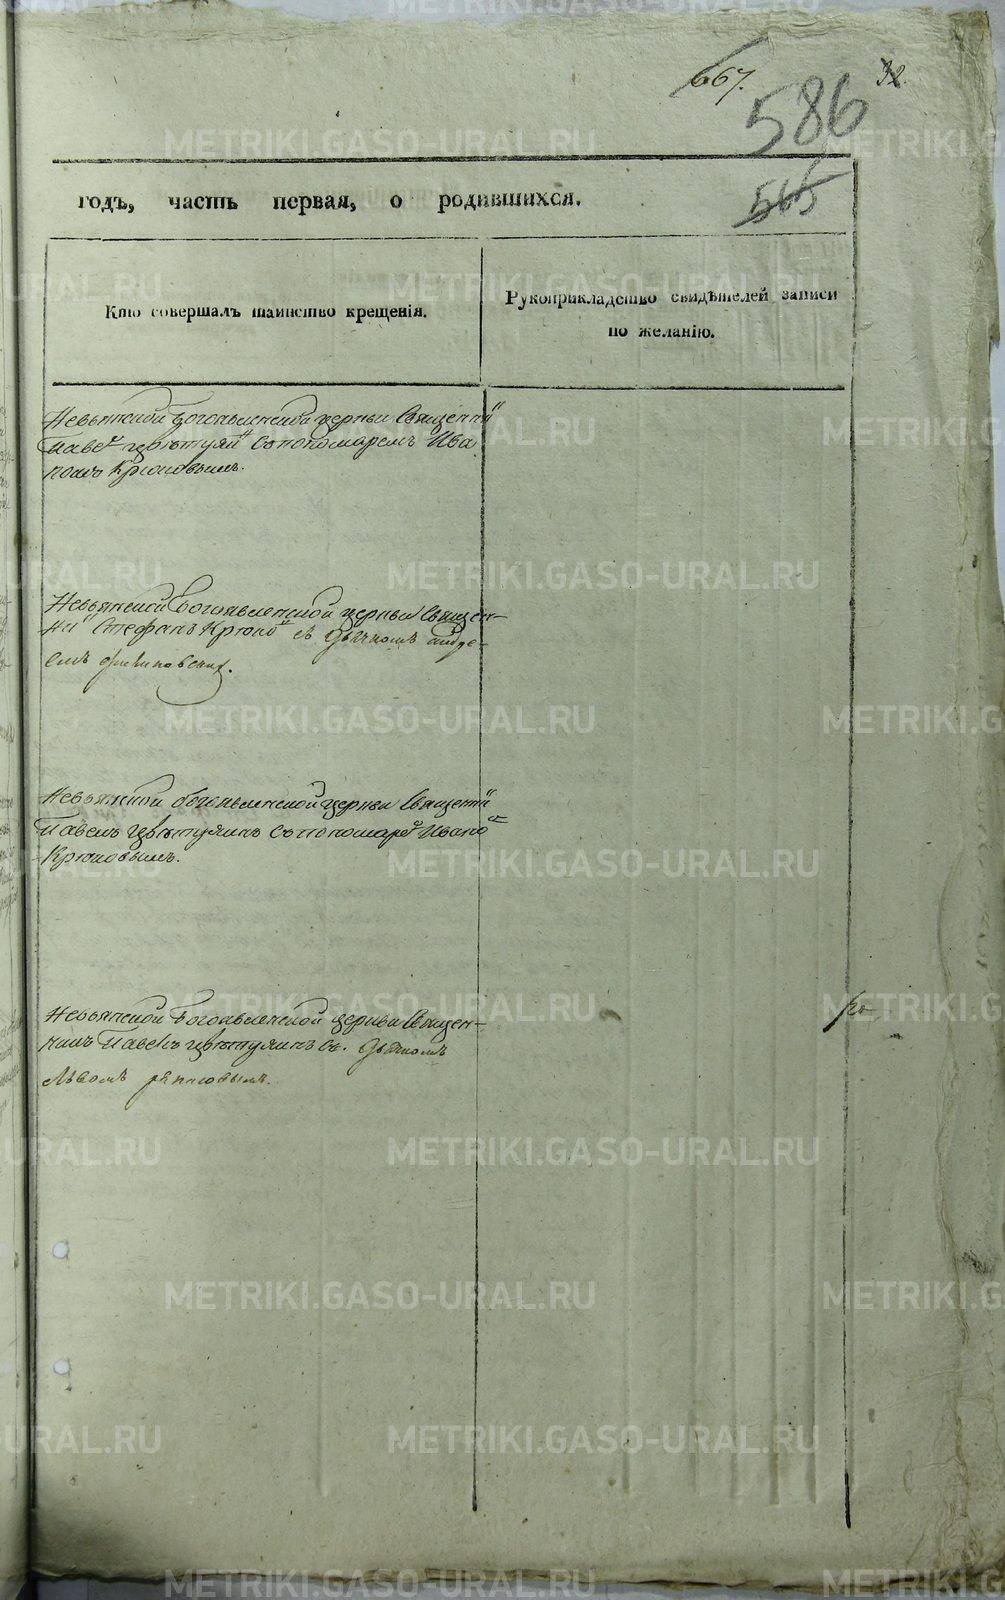 667.
32.
586
565
годъ, часть первая, о родившихся.
Кто совершалъ таинство крещенія.
Рукоприкладство свидѣтелей записи
по желанію.
Невьянской Богоявленской церкви Священни
Павелъ Цвѣтухи съ пономаремъ Ива
номъ Крюковымъ.
Невьянской Богоявленской церкви Священ-
ни Стефанъ Крюко съ Дьячкомъ андре-
емъ
Невьянской богоявленской церкви Священни
Павелъ Цвѣтухинъ съ пономаре Ивано
Крюковымъ.
Невьянской Богоявленской церкви Священ-
никъ Павелъ Цвѣтухинъ съ. Дьячкомъ
Львомъ
METRIKI.GASO-URAL.RU